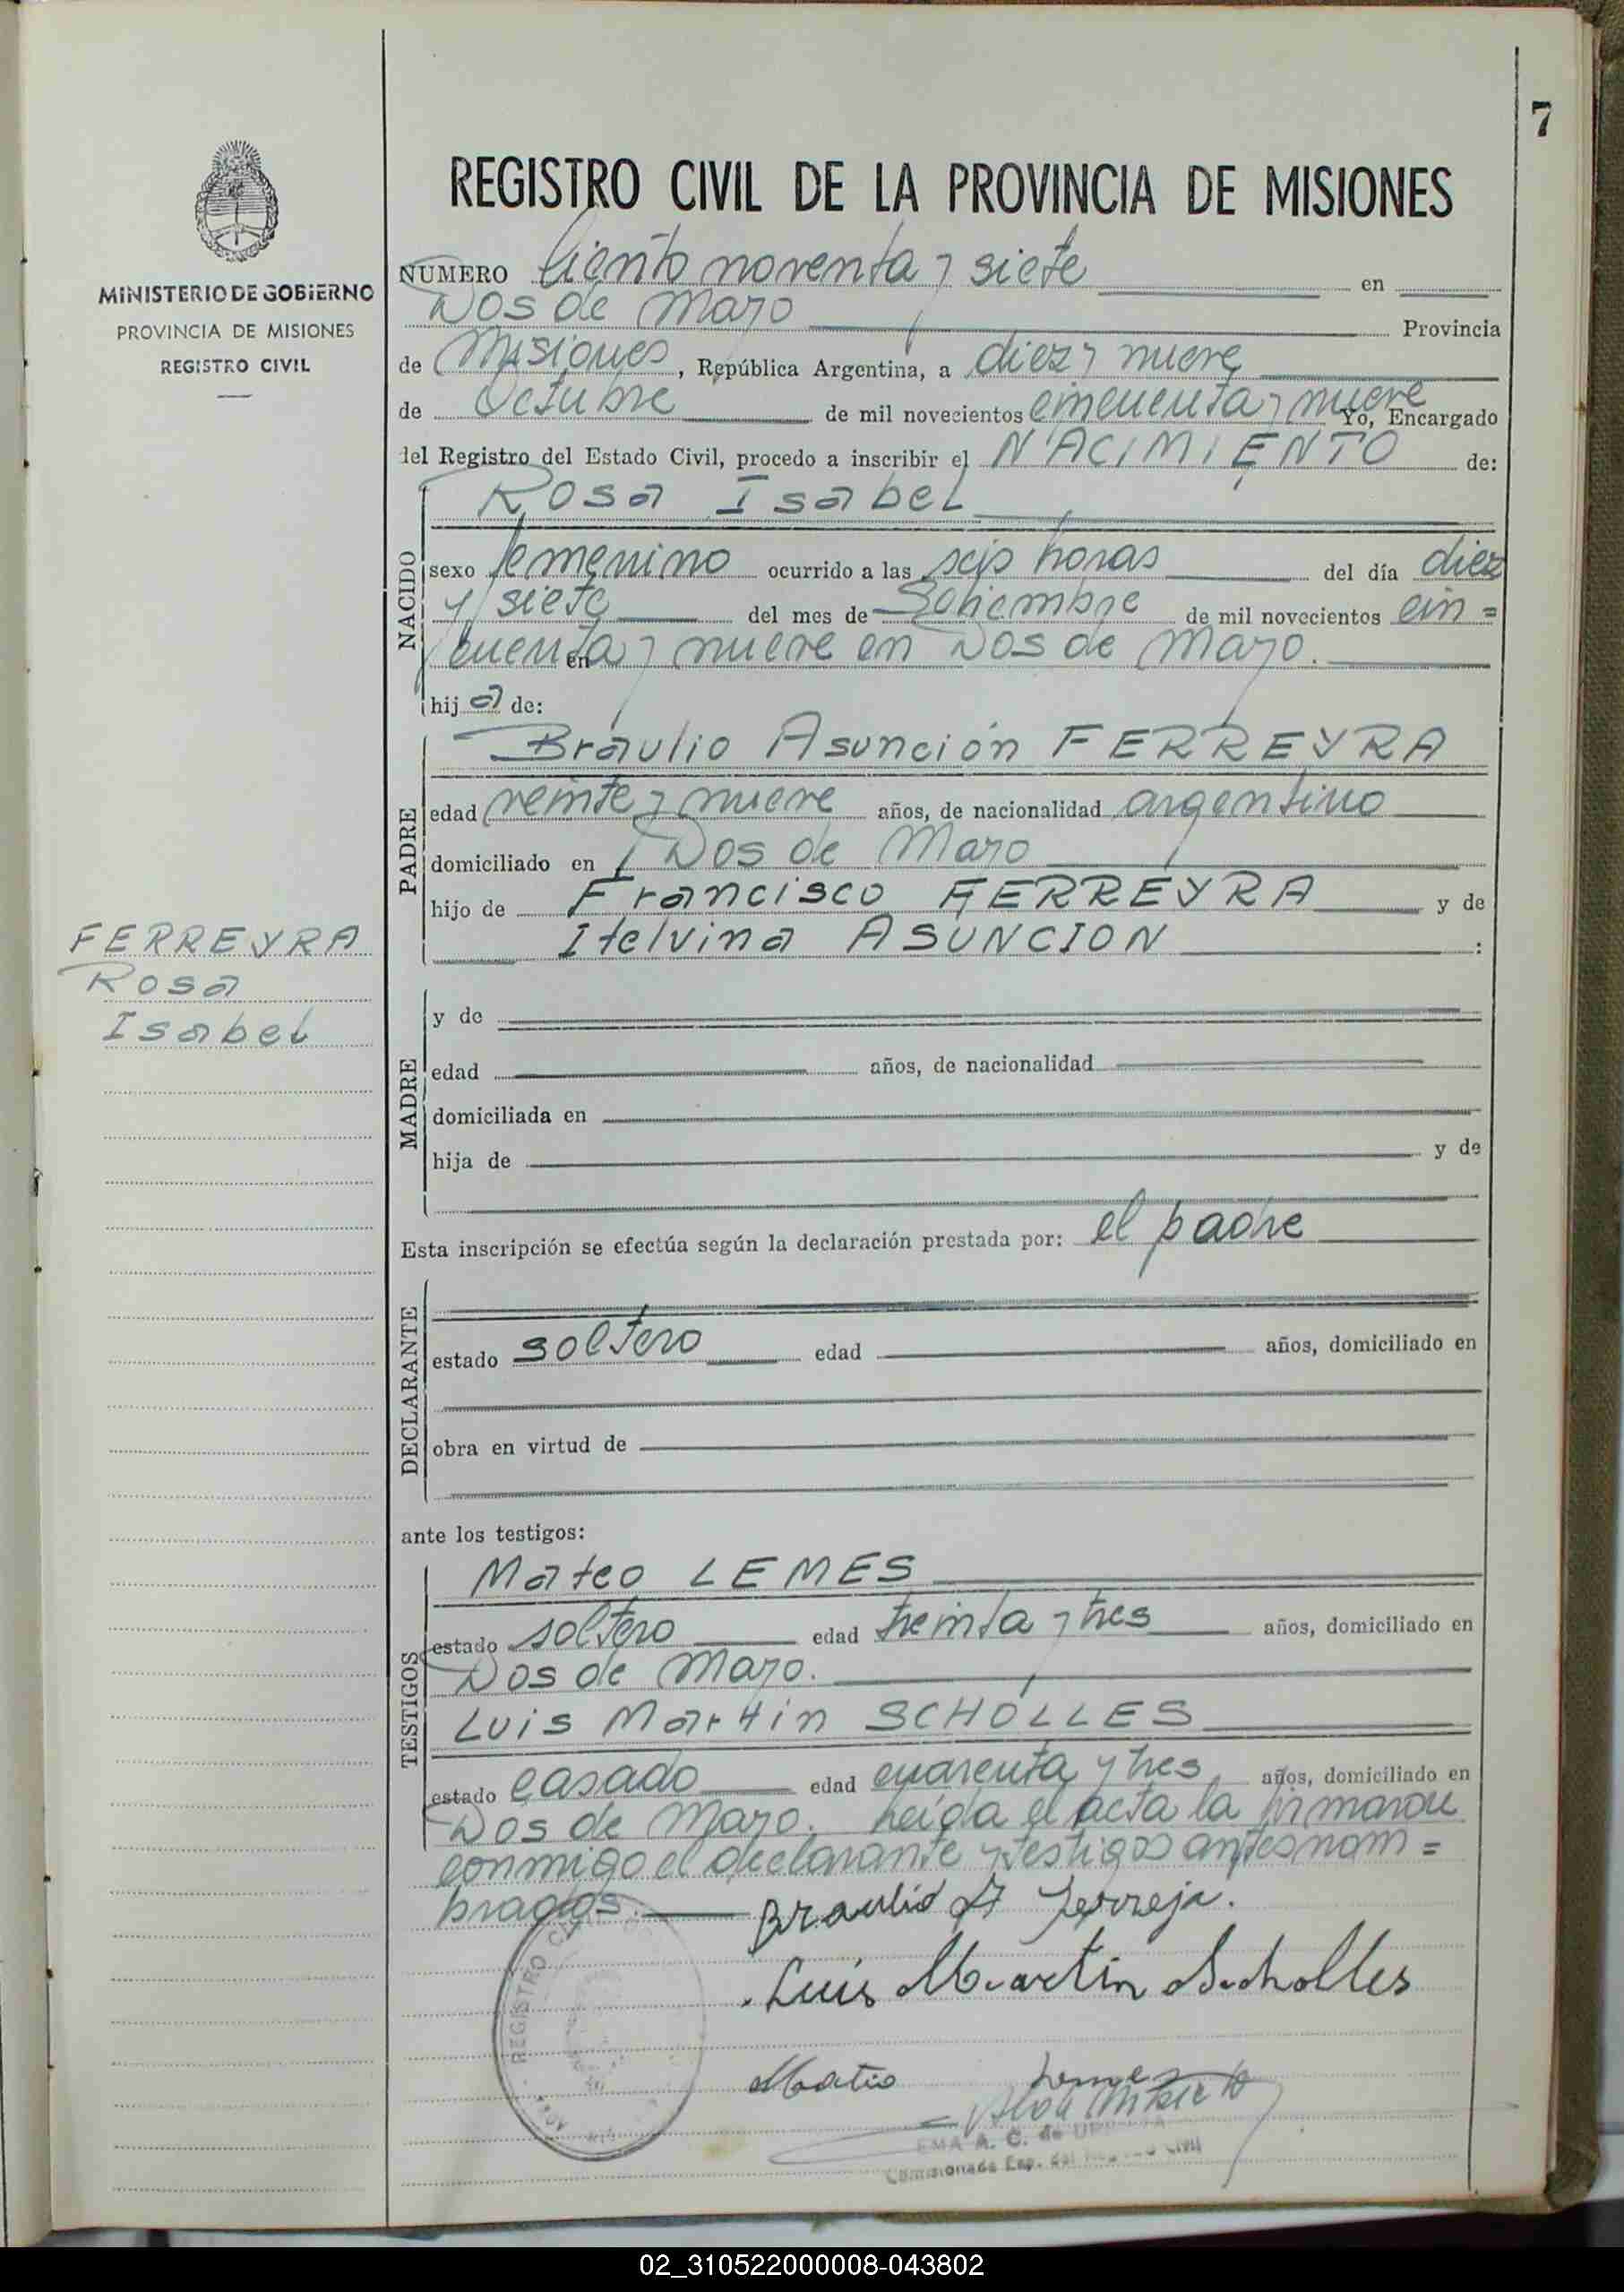 7
MINISTERIO DE GOBIERNO
PROVINCIA DE MISIONES
REGISTRO CIVIL
REGISTRO CIVIL DE LA PROVINCIA DE MISIONES
NUMERO Ciento noventa y siete en
Dos de Mayo Provincia
de Misiones, República Argentina, a diez y nueve
de Octubre de mil novecientos cincuenta y nueve Yo, Encargado
del Registro del Estado Civil, procedo a inscribir el NACIMIENTO de:
NACIDO
Rosa Isabel
sexo femenino ocurrido a las seis horas del día diez
y siete del mes de Setiembre de mil novecientos cin=
cuenta y nueve en Dos de Mayo.
en
hij a de:
PADRE
Braulio Asunción FERREYRA
edad veinte y nueve años, de nacionalidad argentino
domiciliado en Dos de Mayo
hijo de Francisco FERREYRA y de
Itelvina ASUNCION :
FERREYRA
Rosa
Isabel
MADRE
y de
edad años, de nacionalidad
domiciliada en
hija de y de
Esta inscripción se efectúa según la declaración prestada por: el padre
DECLARANTE
estado soltero edad años, domiciliado en
obra en virtud de
ante los testigos:
TESTIGOS
Mateo LEMES
estado soltero edad treinta y tres años, domiciliado en
Dos de Mayo.
Luis Martin SCHOLLES
estado casado edad cuarenta y tres años, domiciliado en
Dos de Mayo. Leída el acta la firmaron
conmigo el declarante y testigos antes nom=
brados. Braulio A Ferreja.
Luis Martin Scholles
Matio Lemes
REGISTRO CIVIL
EMA A. C. de
Comisionada Esp. del Registro Civil
02_310522000008-043802